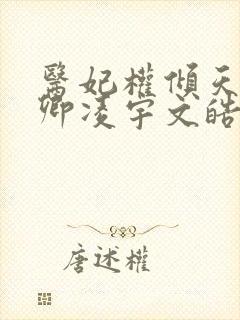 醫妃權傾天
卿凌宇文皓
唐述權